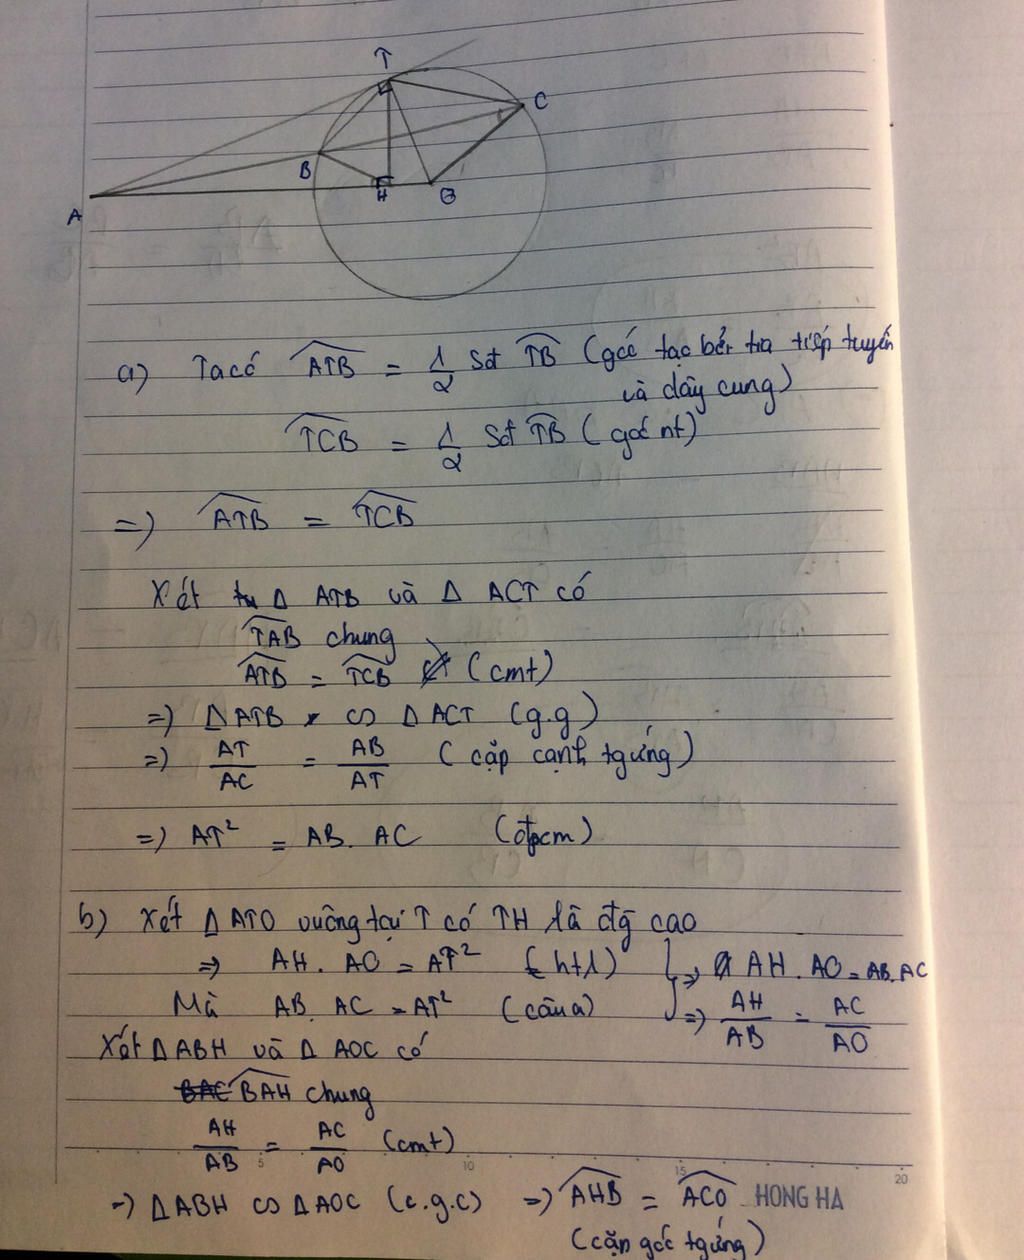 T
C
B
H
O
A
a) Ta có ATB = 1/2 Sđ TB (góc tạo bởi tia tiếp tuyến
và dây cung)
TCB = 1/2 Sđ TB (góc nt)
=) ATB = TCB
Xét Δ ATB và Δ ACT có
TAB chung
ATB = TCB (cmt)
=) Δ ATB ∽ Δ ACT (g.g)
=) AT/AC = AB/AT (cặp cạnh tgứng)
=) AT² = AB. AC (đpcm)
b) Xét Δ ATO vuông tại T có TH là đg cao
=> AH. AO = AT² (htl) => AH. AO = AB. AC
Mà AB. AC = AT² (câu a) =) AH/AB = AC/AO
Xét Δ ABH và Δ AOC có
BAH chung
AH/AB = AC/AO (cmt)
5 10 15 20
=) Δ ABH ∽ Δ AOC (c.g.c) =) AHB = ACO HONG HA
(cặp góc tgứng)